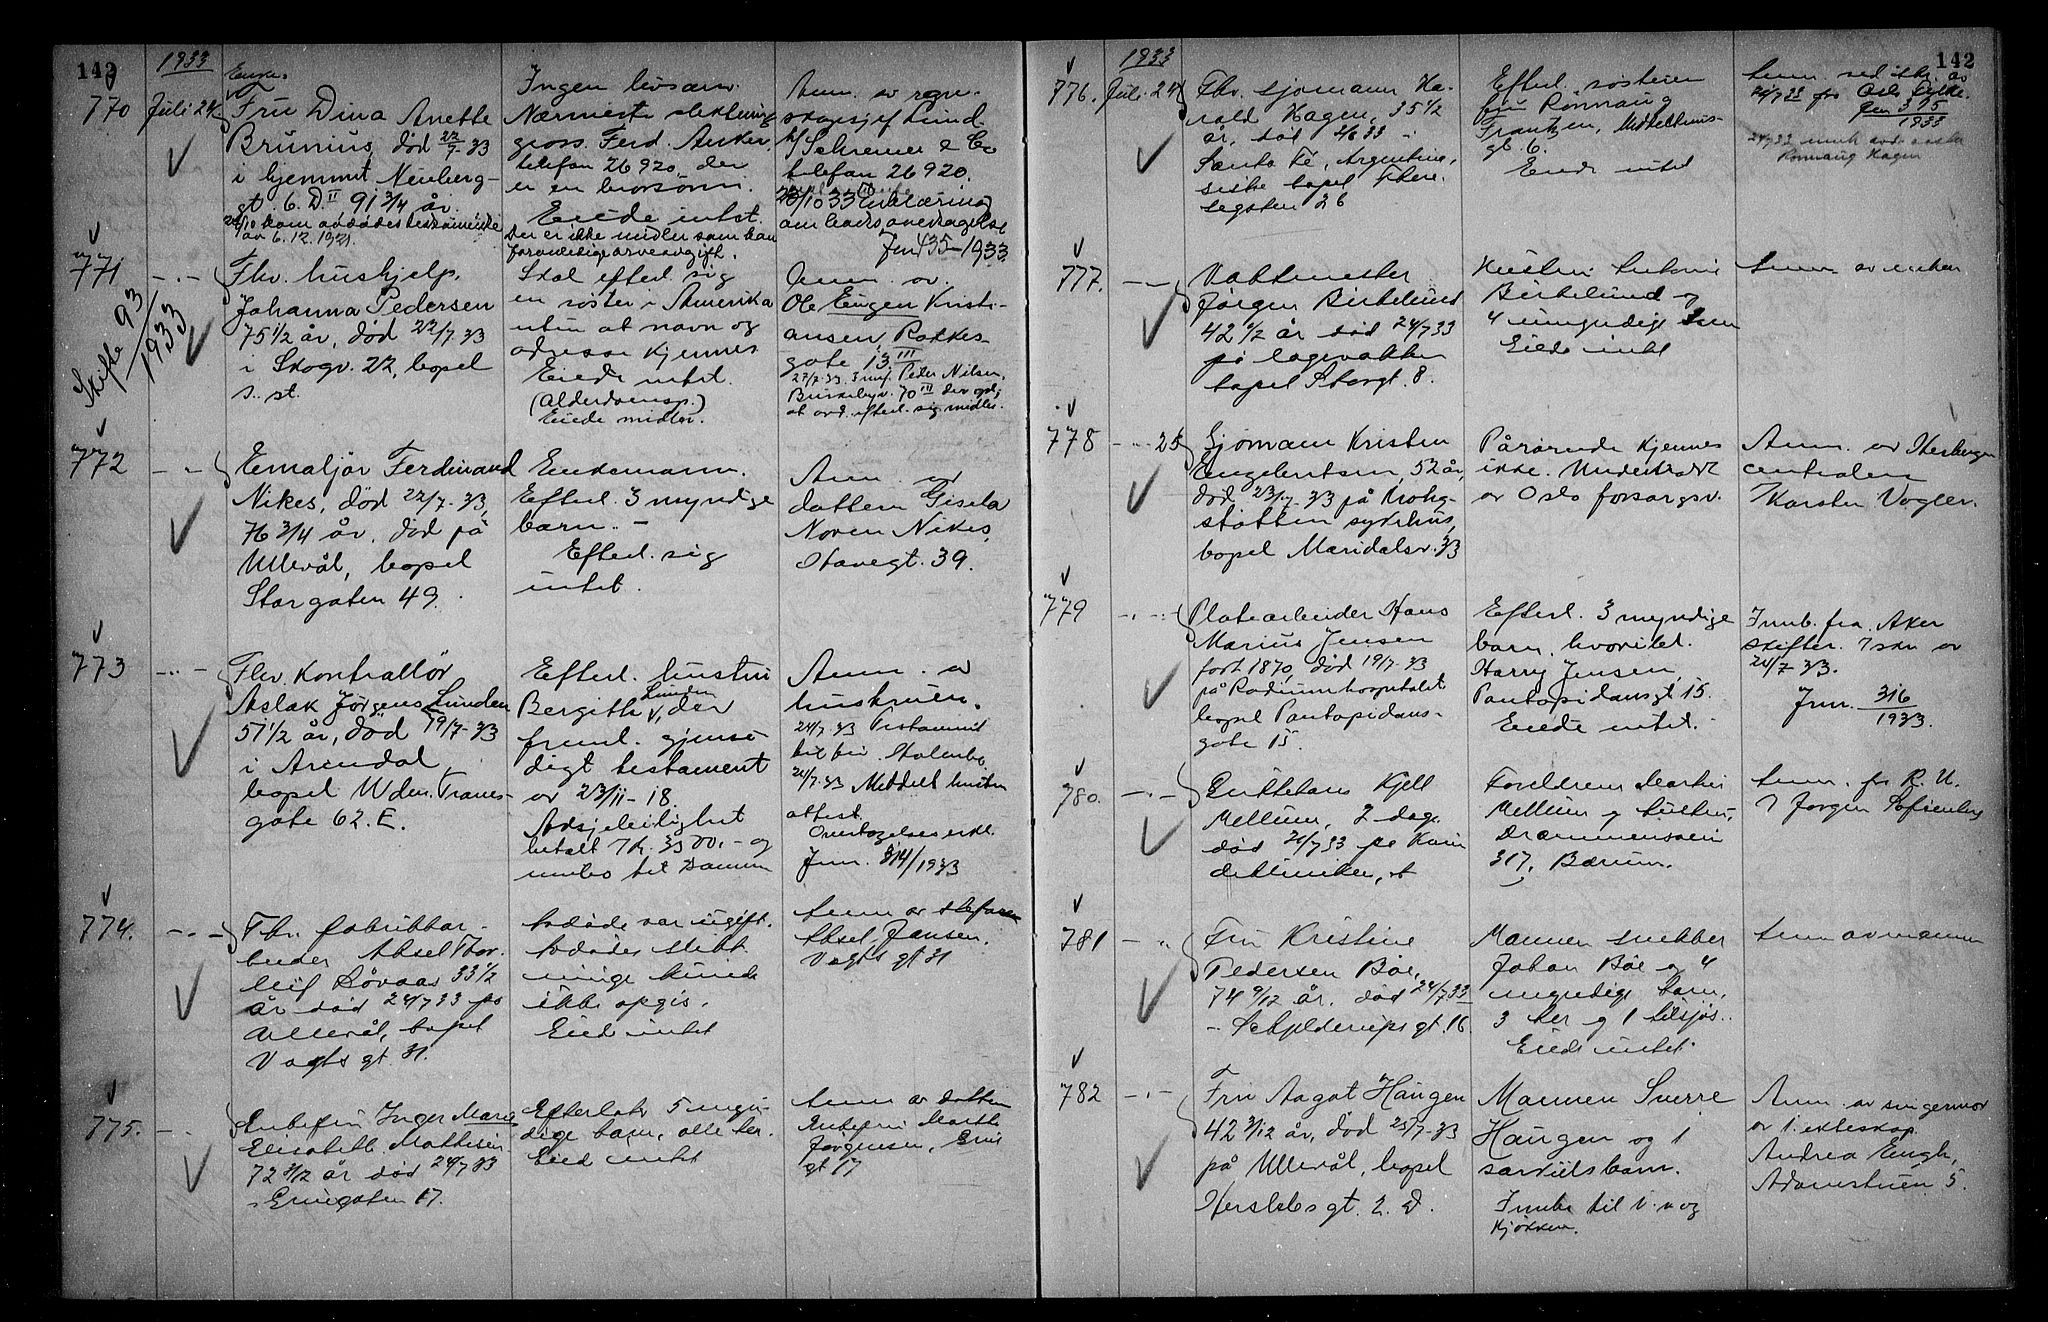 142
1933
770
Juli 24.
Enke.
Fru Dina Anette
Brunius, død 22/7-33
i hjemmet Neuberg-
gt. 6. D. II 91 3/4 år.
kom avdødes testamente
av 6.12.1921.
Ingen livsarv.
Nærmeste slektning
gross. Ferd. Anker,
telefon 26920, der
er en brorsønn.
Eiede intet.
Der er ikke midler som kan
foranledige arveavgift.
Anm. av regn-
skapssjef Lind
Schremer & Co
telefon 26920.
/10 33 Erklæring
om boets overtagelse
Jnr 435-1933
771
Skifte 93
1933
Fhv. hushjelp.
Johanna Pedersen
75 1/2 år, død 22/7-33
i Skogv. 22, bopel
s. st.
Skal efterl. sig
en søster i Amerika
uten at navn og
adresse kjennes
Eiede intet.
(Alderdomsp.)
Eiede midler.
Anm. av
Ole Eugen Kristi-
ansen, Rakkes-
gate 13 III
27/7-33 Peter Nilsen,
70 III
at avd. efterl. sig midler.
772
Emaljør Ferdinand
Nikes, død 22/7-33,
76 3/4 år, død på
Ullevål, bopel
Storgaten 49.
Enkemann.
Efterl. 3 myndige
barn. -
Efterl. sig
intet.
Anm. av
datteren Gisela
Noren Nikes,
gt. 39.
773
Fhv. kontrollør
Aslak Jørgens. Lunden
57 1/2 år, død 19/7-33
i Arendal,
bopel Uden. Tranes-
gate 62. E.
Efterl. hustru
Bergithe Lunden, der
freml. gjensi-
digt testament
av 23/11-18.
Avsjeleilighet
betalt 7 k. 3500,- og
innbo til samm
Anm. av
hustruen.
24/7-33 Testamentet
24/7-33 Meddelt hustruen
attest
Overtagelseserkl.
Jnr. 314/1933
774.
Fhv. fabrikkar-
beider Aksel Thor-
leif Løvaas 33 1/2
år død 24/7 33 på
Ullevål, bopel
Vogts gt 31.
Avdøde var ugift.
Avdødes slekt-
ninge kunde
ikke opgis.
Eied intet
Anm av stefaren
Aksel Jansen.
Vogts gt 31
775.
Enkefru Inger Marie
Elisabeth Mathisen
72 3/12 år død 24/7 33
Eriksgaten 17.
Efterlater 5 myn-
dige barn, alle her.
Eied intet
Anm av datter
Enkefru Marthe
Jørgensen,
gt 17
142
1933
776.
Juli 24
Fhv. sjømann Ha-
rald Hagen, 35 1/2
år, død 2/6 33 i
Santa Fé, Argentina,
siste bopel There-
segaten 26
Efterl. søsteren
fru Ronnaug
Frantzen, Middelthuns-
gt. 6.
Eiede intet
Anm. ved skr. av
24/7 33 fra Oslo fylke.
Jnr 315
1933
Ronnaug Hagen
777.
Vaktmester
Jørgen Birkelund
42 4/12 år død 24/7 33
på legevakten
bopel Storgt. 8.
Hustru Antonie
Birkelund og
4 umyndige barn
Eiede intet
Anm av enken
778
25
Sjømann Kristen
Engebretsen, 52 år,
død 23/7-33 på Krohg-
støtten sykehus,
bopel Maridalsv. 33
Pårørende kjennes
ikke. Understøttet
av Oslo forsorgsv.
Anm. av Herberge
centralen
Karsten Vogler.
779
Platearbeider Hans
Marius Jensen
født 1870, død 19/7-33
på Radiumhospitalet
bopel Pontopidans-
gate 15.
Efterl. 3 myndige
barn, hvoriblt.
Harry Jensen,
Pontopidansgt 15.
Eiede intet.
Innb. fra Aker
skifter. 7 skr av
24/7 33.
Jnr. 316
1933.
780.
Guttebarn Kjell
Mellum, 2 dage
død 20/7 33 på Kvin
deklinikken,
Foreldrene Martin
Mellum og hustru,
Drammensvein
317, Bærum.
Anm. fra R. H.
v Jørgen Sofienberg
781
Fru Kristine
Pedersen Bøe,
74 9/12 år. død 24/7 33
Schjelderups gt. 16.
Mannen snekker
Johan Bøe og 4
myndige barn,
3 her og 1 tilsjøs.
Eiede intet.
Anm av mannen
782
Fru Aagot Haugen
42 3/12 år, død 23/7-33
på Ullevål, bopel
Herslebs gt. 2. D.
Mannen Sverre
Haugen og 1
særkulsbarn.
Innbo til 1 v. og
kjøkken.
Anm. av svigermor
av 1. ekteskap
Andrea Engh,
Adamstuen 5.